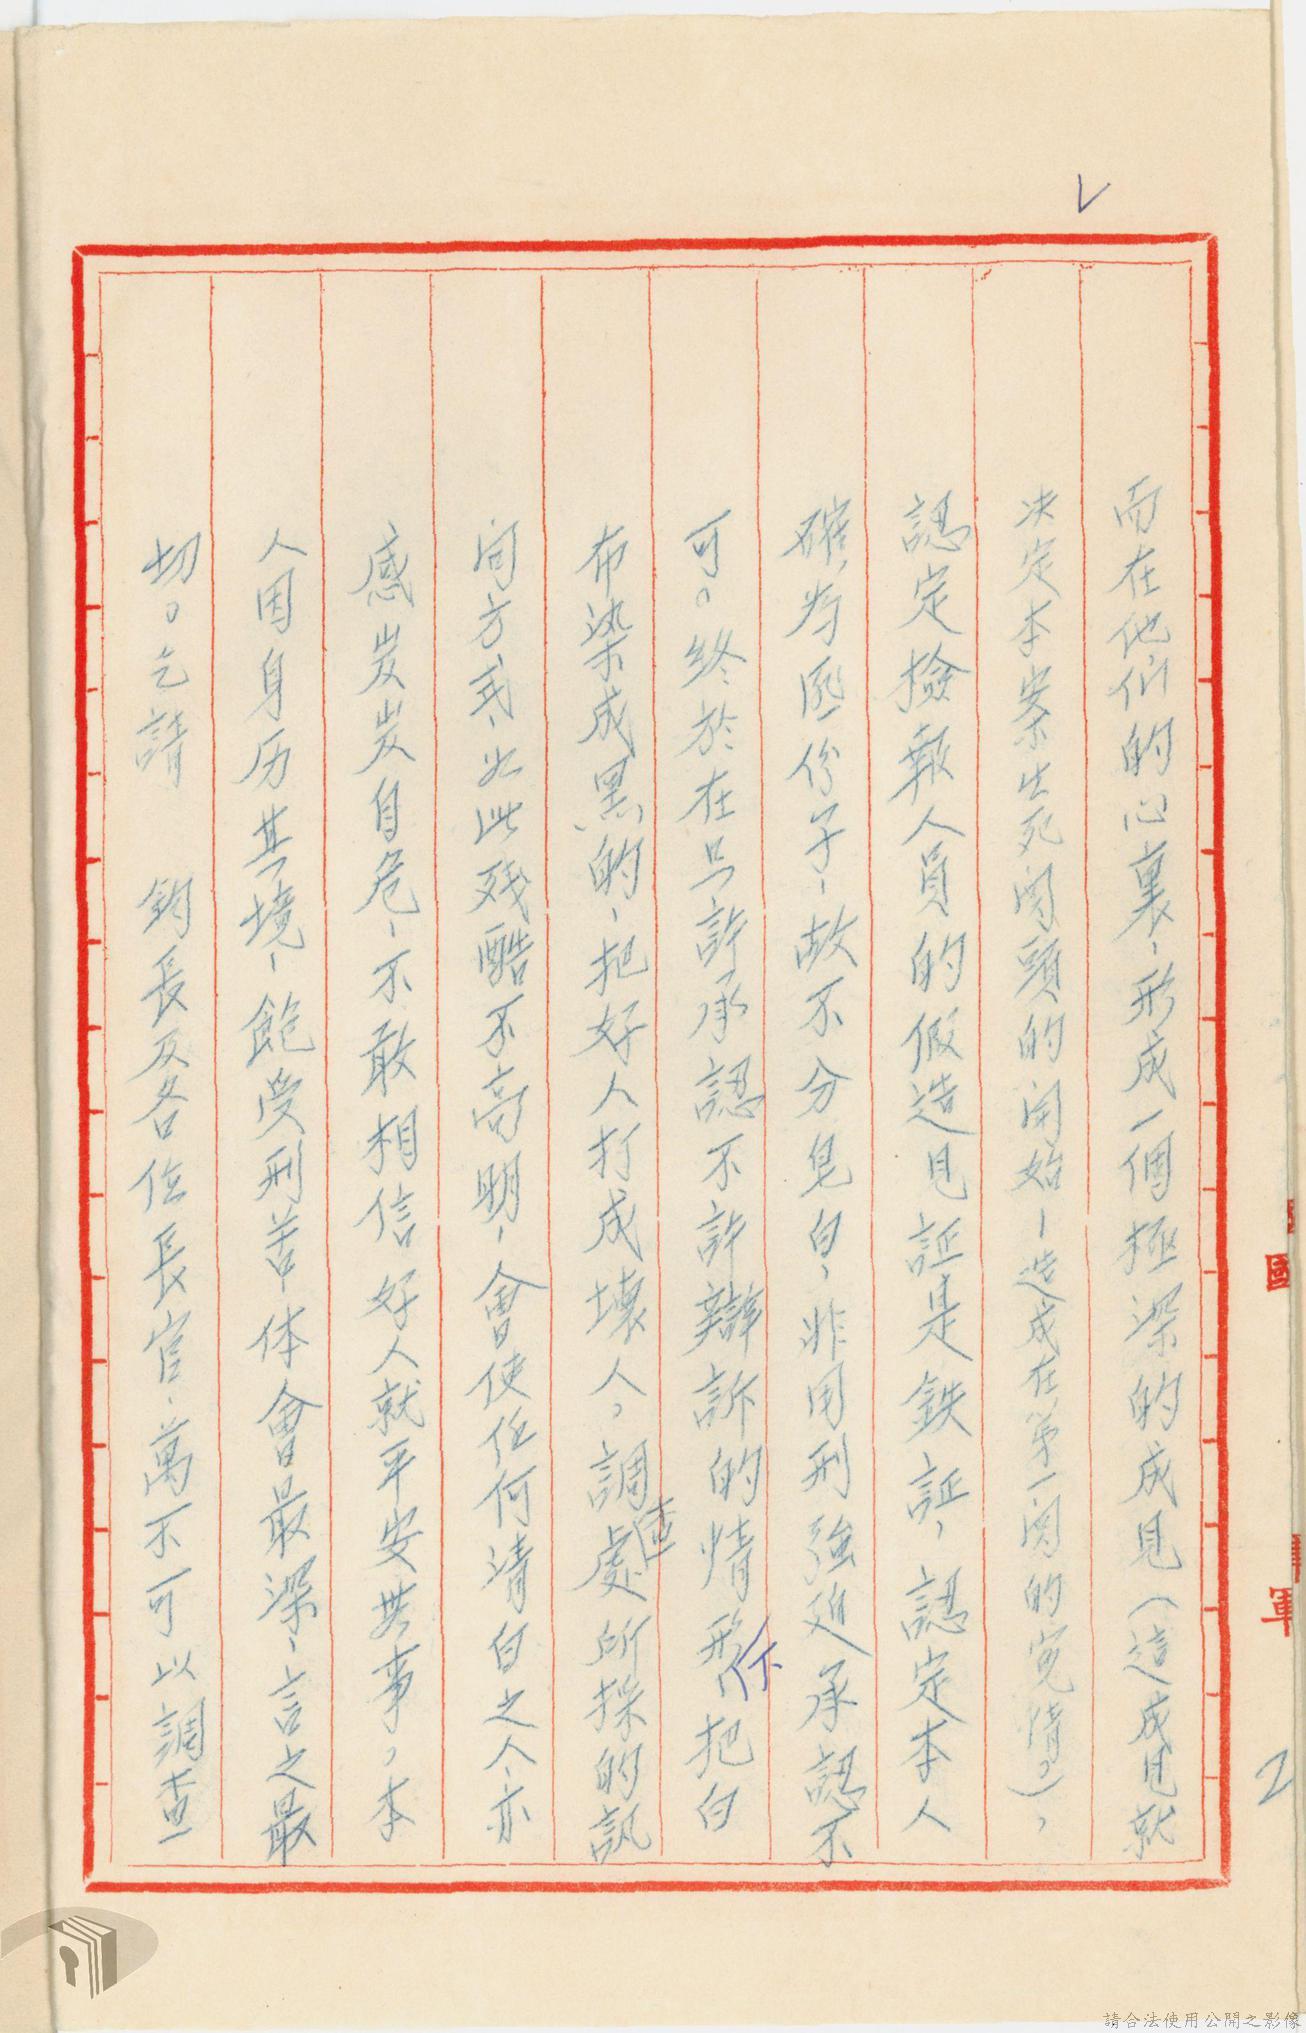 而在他们的心裏，形成一個極深的成見（這成見就
决定本案生死関頭的開始，造成在第一関的寃情。），
認定撿報人員的假造見証是鉄証，認定本人
確為匪份子，故不分皂白，非用刑強廹承認不
可。終於在只許承認不許辯訴的情形下把白
布染成黑的，把好人打成壞人。調查處所採的訊
问方式，如此残酷不高明，會使任何清白之人，亦
感岌岌自危，不敢相信好人就平安無事。本
人因身历其境，飽受刑苦体會最深，言之最
切。乞請　鈞長及各位長官，萬不可以調查
2
國
軍
請合法使用公開之影像